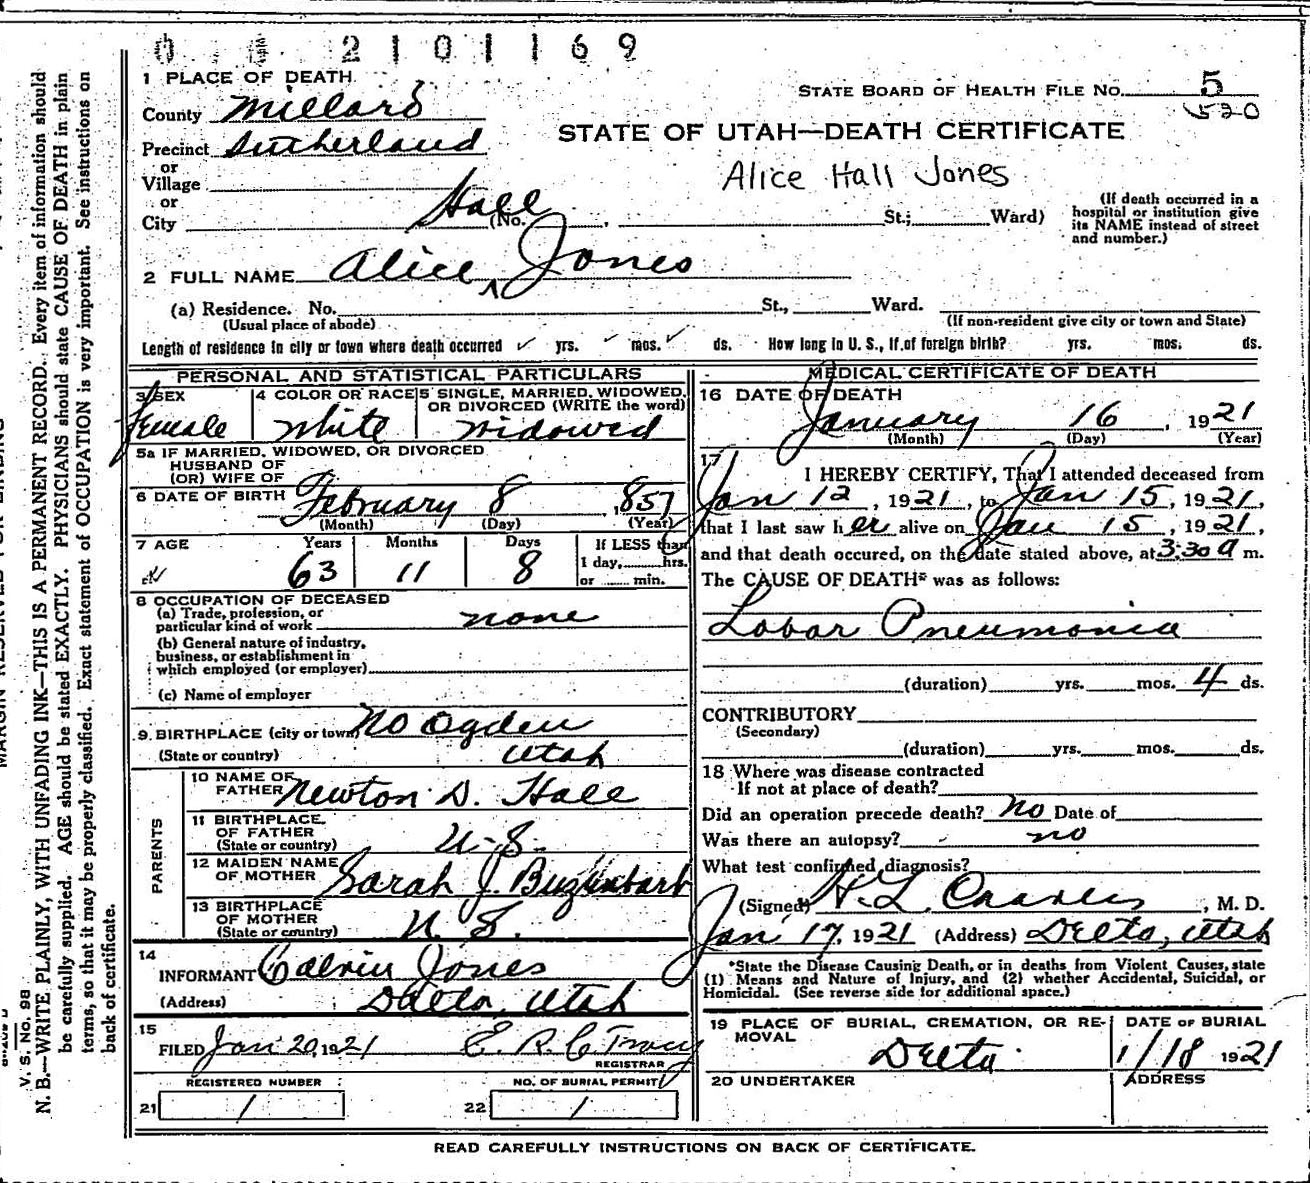 2101169
1 PLACE OF DEATH
County Millard
STATE BOARD OF HEALTH FILE NO. 5
530
STATE OF UTAH—DEATH CERTIFICATE
Precinct Sutherland
or
Village
Alice Hall Jones
or
City (No. , St.; Ward)
(If death occurred in a
hospital or institution give
its NAME instead of street
and number.)
Hall
2 FULL NAME Alice ^ Jones
(a) Residence. No. St., Ward.
(Usual place of abode)
(If non-resident give city or town and State)
Length of residence in city or town where death occurred ✓ yrs. ✓ mos. ✓ ds. How long in U. S., if of foreign birth? yrs. mos. ds.
PERSONAL AND STATISTICAL PARTICULARS
3 SEX
Female
4 COLOR OR RACE
White
5 SINGLE, MARRIED, WIDOWED,
OR DIVORCED (WRITE the word)
Widowed
5a IF MARRIED, WIDOWED, OR DIVORCED
HUSBAND OF
(OR) WIFE OF
6 DATE OF BIRTH February 8, 857
(Month) (Day) (Year)
7 AGE
Years Months Days
63 11 8
If LESS than
1 day, hrs.
or min.
8 OCCUPATION OF DECEASED
(a) Trade, profession, or
particular kind of work none
(b) General nature of industry,
business, or establishment in
which employed (or employer)
(c) Name of employer
9. BIRTHPLACE (city or town) No Ogden
(State or country) Utah
PARENTS
10 NAME OF
FATHER Newton D. Hall
11 BIRTHPLACE
OF FATHER
(State or country) U-S.
12 MAIDEN NAME
OF MOTHER Sarah J.
13 BIRTHPLACE
OF MOTHER
(State or country) U. S.
14
INFORMANT Calvin Jones
(Address) Delta, Utah
15
FILED Jan 20, 1921 E. R. C. Tracy
REGISTRAR
REGISTERED NUMBER
21 1
NO. OF BURIAL PERMIT
22 1
MEDICAL CERTIFICATE OF DEATH
16 DATE OF DEATH
January 16, 1921
(Month) (Day) (Year)
17
I HEREBY CERTIFY, That I attended deceased from
Jan 12, 1921, to Jan 15, 1921,
that I last saw her alive on Jan 15, 1921,
and that death occured, on the date stated above, at 3:30 a m.
The CAUSE OF DEATH* was as follows:
Lobar Pneumonia
(duration) yrs. mos. 4 ds.
CONTRIBUTORY
(Secondary)
(duration) yrs. mos. ds.
18 Where was disease contracted
If not at place of death?
Did an operation precede death? No Date of
Was there an autopsy? no
What test confirmed diagnosis?
(Signed) H. L. Charles, M. D.
Jan 17, 1921 (Address) Delta, Utah
*State the Disease Causing Death, or in deaths from Violent Causes, state
(1) Means and Nature of Injury, and (2) whether Accidental, Suicidal, or
Homicidal. (See reverse side for additional space.)
19 PLACE OF BURIAL, CREMATION, OR RE-
MOVAL
Delta
DATE OF BURIAL
1/18 1921
20 UNDERTAKER
ADDRESS
READ CAREFULLY INSTRUCTIONS ON BACK OF CERTIFICATE.
V. S. No. 98
N. B.—WRITE PLAINLY, WITH UNFADING INK—THIS IS A PERMANENT RECORD. Every item of information should
be carefully supplied. AGE should be stated EXACTLY. PHYSICIANS should state CAUSE OF DEATH in plain
terms, so that it may be properly classified. Exact statement of OCCUPATION is very important. See instructions on
back of certificate.